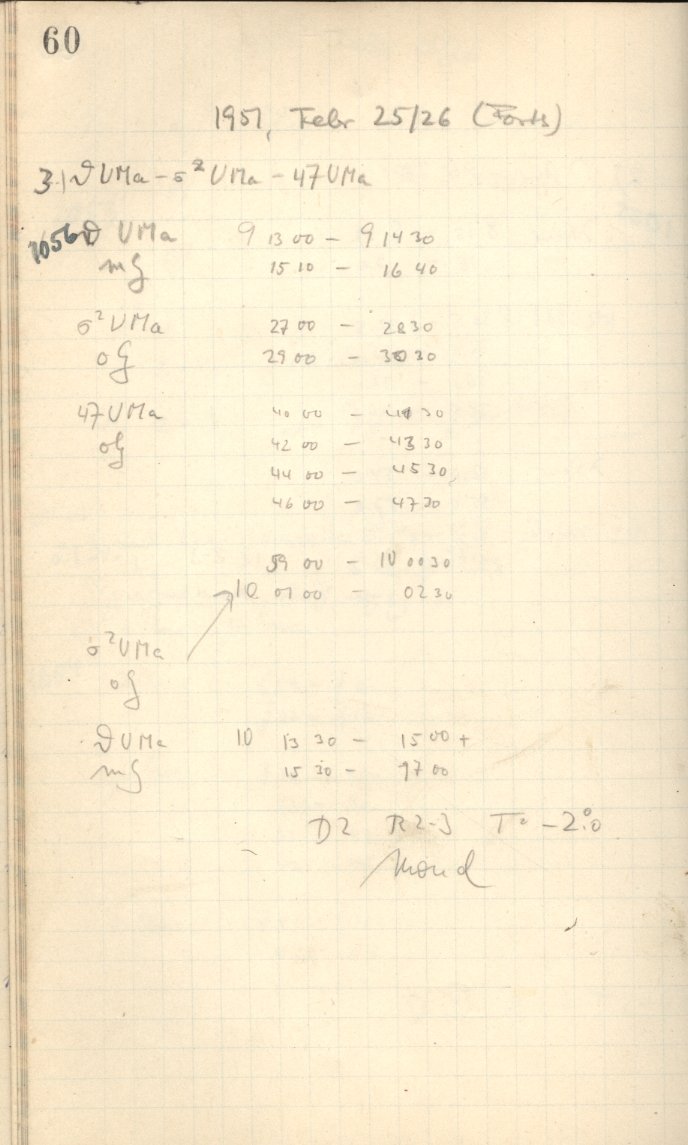 60
1951, Febr 25/26 (Forts)
3.) ϑ UMa – σ² UMa – 47 UMa
1056 ϑ UMa 9 13 00 – 9 14 30
mG 15 10 – 16 40
σ² UMa 27 00 – 28 30
oG 29 00 – 30 30
47 UMa 40 00 – 41 30
oG 42 00 – 43 30
44 00 – 45 30
46 00 – 47 30
59 00 – 10 00 30
10 01 00 – 02 30
σ² UMa
oG
ϑ UMa 10 13 30 – 15 00 +
mG 15 30 – 17 00
D2 R2-3 T = –2.°0
Mond